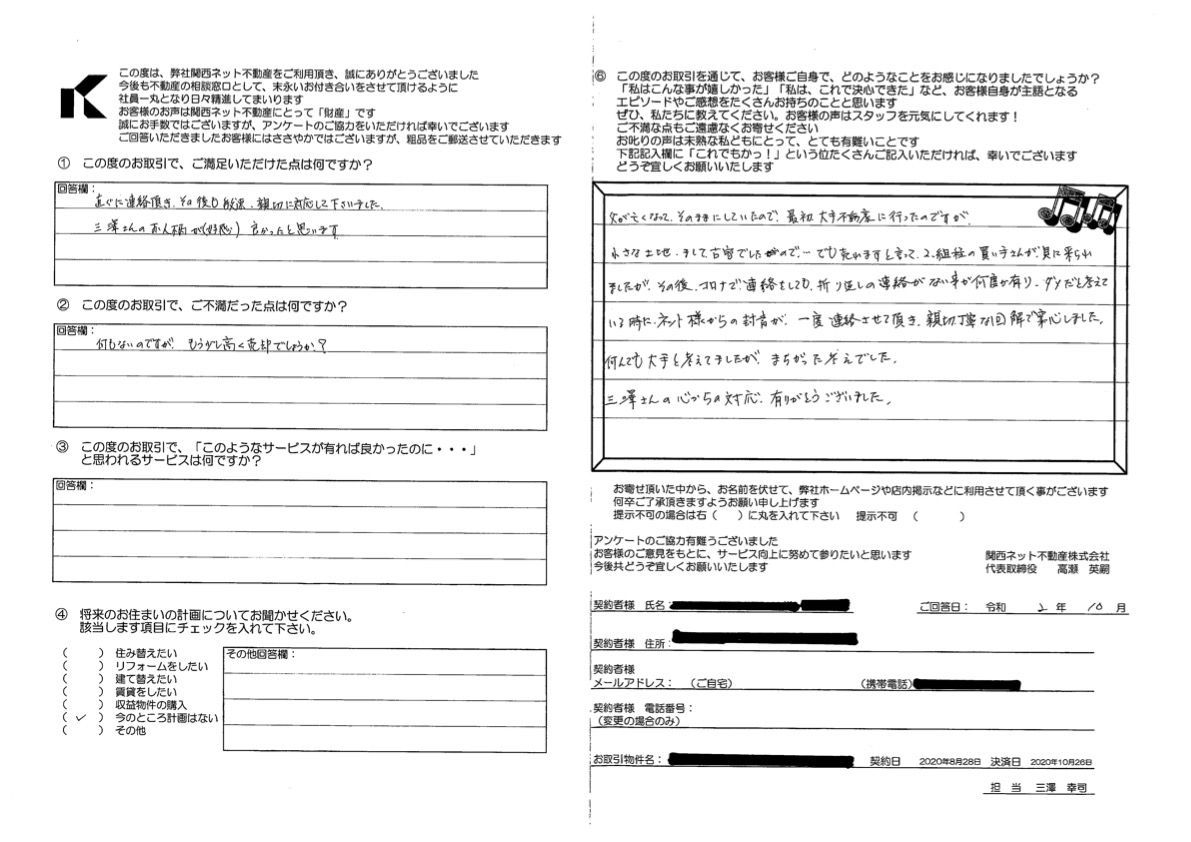 この度は、弊社関西ネット不動産をご利用頂き、誠にありがとうございました
今後も不動産の相談窓口として、末永いお付き合いをさせて頂けるように
社員一丸となり日々精進してまいります
お客様のお声は関西ネット不動産にとって「財産」です
誠にお手数ではございますが、アンケートのご協力をいただければ幸いでございます
ご回答いただきましたお客様にはささやかではございますが、粗品をご郵送させていただきます
① この度のお取引で、ご満足いただけた点は何ですか？
回答欄：
直ぐに連絡頂き、その後も敏速、親切に対応して下さいました。
三澤さんのお人柄が(好感)良かったと思います
② この度のお取引で、ご不満だった点は何ですか？
回答欄：
何もないのですが、もう少し高く売却でしょうか？
③ この度のお取引で、「このようなサービスが有れば良かったのに・・・」
と思われるサービスは何ですか？
回答欄：
④ 将来のお住まいの計画についてお聞かせください。
該当します項目にチェックを入れて下さい。
（　　）住み替えたい
（　　）リフォームをしたい
（　　）建て替えたい
（　　）賃貸をしたい
（　　）収益物件の購入
（✓）今のところ計画はない
（　　）その他
その他回答欄：
⑥ この度のお取引を通じて、お客様ご自身で、どのようなことをお感じになりましたでしょうか？
「私はこんな事が嬉しかった」「私は、これで決心できた」など、お客様自身が主語となる
エピソードやご感想をたくさんお持ちのことと思います
ぜひ、私たちに教えてください。お客様の声はスタッフを元気にしてくれます！
ご不満な点もご遠慮なくお寄せください
お叱りの声は未熟な私どもにとって、とても有難いことです
下記記入欄に「これでもかっ！」という位たくさんご記入いただければ、幸いでございます
どうぞ宜しくお願いいたします
父が亡くなって、そのままにしていたので、最初大手不動産に行ったのですが、
小さな土地、そして古家でしたがので、でも売れますと言って、2、組程の買い手さんが、見に来られ
ましたが、その後、コロナで、連絡をしても、折り返しの連絡がない事が何度か有り、ダメだと考えて
いる時に、ネット様からの封書が、一度連絡させて頂き、親切丁寧な図解で安心しました。
何んでも大手と考えてましたが、まちがった考えでした。
三澤さんの心からの対応、有りがとうございました。
お寄せ頂いた中から、お名前を伏せて、弊社ホームページや店内掲示などに利用させて頂く事がございます
何卒ご了承頂きますようお願い申し上げます
提示不可の場合は右（　　）に丸を入れて下さい　提示不可　（　　　）
アンケートのご協力有難うございました
お客様のご意見をもとに、サービス向上に努めて参りたいと思います
今後共どうぞ宜しくお願いいたします
関西ネット不動産株式会社
代表取締役　高瀬　英嗣
契約者様　氏名：
ご回答日：　令和　2　年　10　月
契約者様　住所：
契約者様
メールアドレス：　（ご自宅）　（携帯電話）
契約者様　電話番号：
（変更の場合のみ）
お取引物件名：　契約日　2020年8月28日　決済日　2020年10月26日
担　当　三澤　幸司